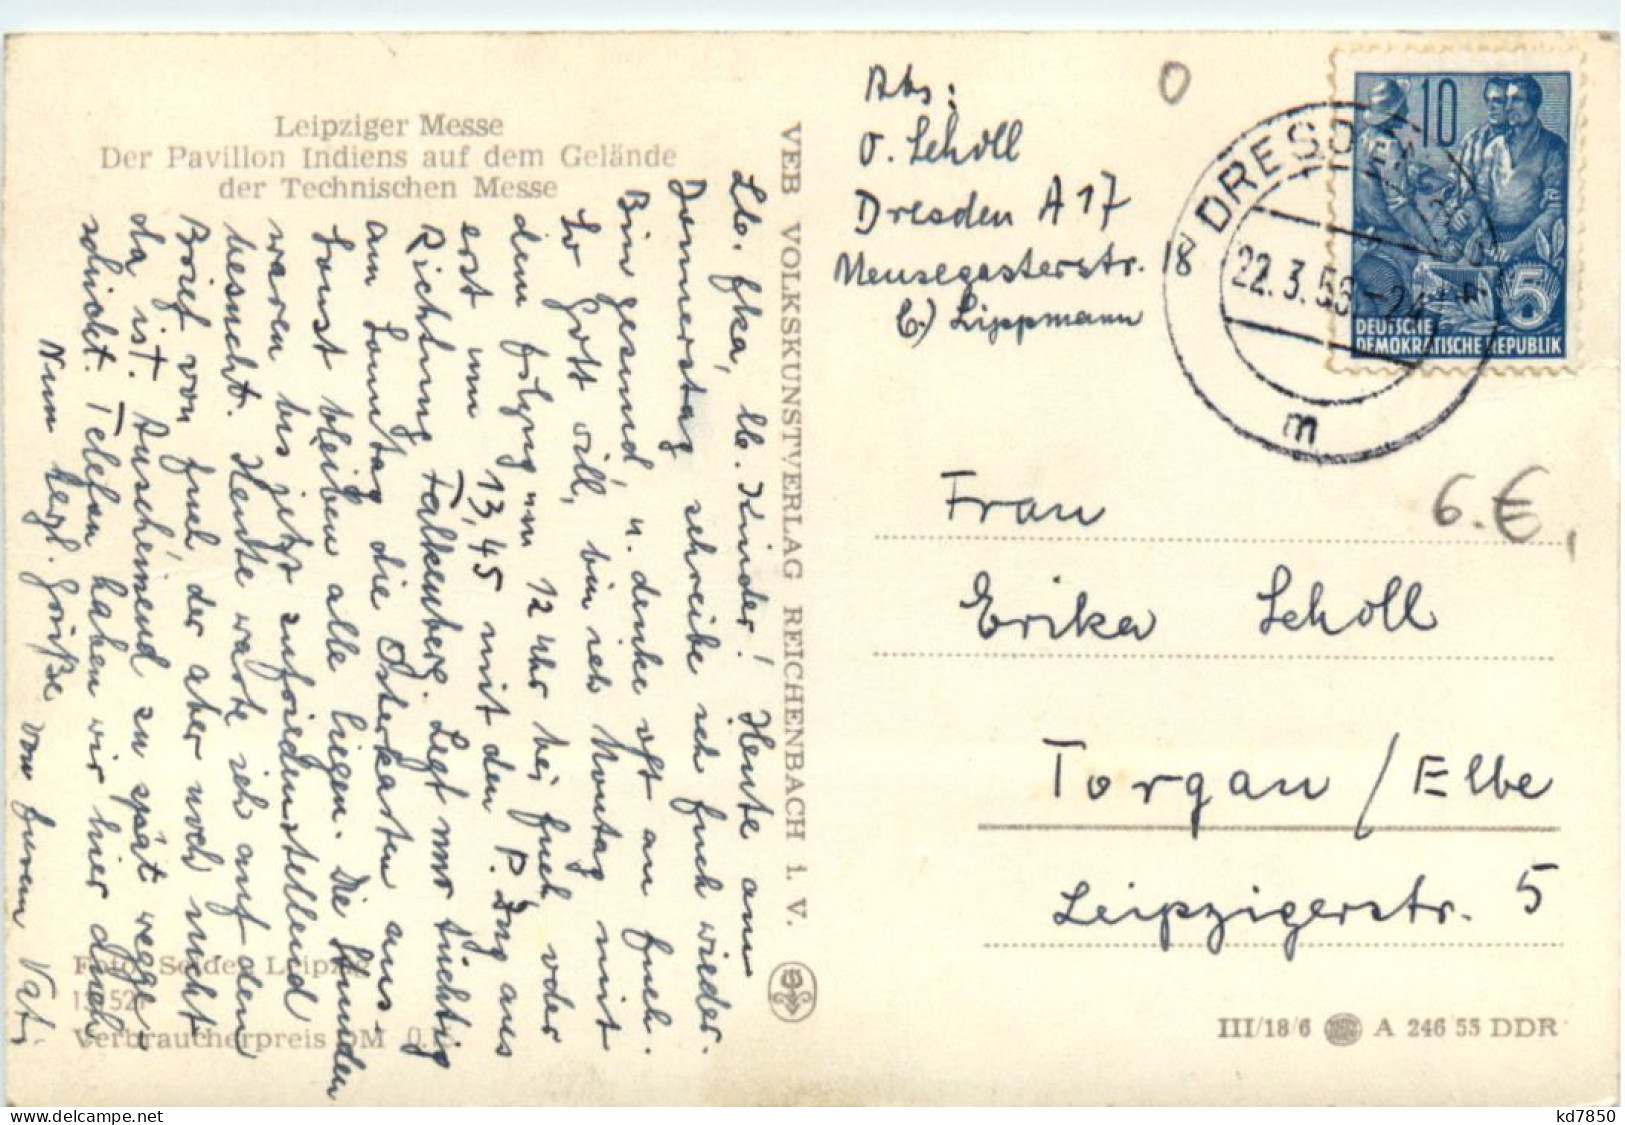 Leipziger Messe
Der Pavillon Indiens auf dem Gelände
der Technischen Messe
Lb. Erka, lb. Kinder! Heute am
Donnerstag schreibe ich Euch wieder.
Bin gesund, u. denke oft an Euch.
So Gott will, bin ich Montag mit
dem um 12 Uhr bei Euch oder
erst um 13,45 mit den P. Zug aus
Richtung Falkenberg. Legt nur tüchtig
am Sonntag die Osterkarten aus
sonst bleiben alle liegen. Die Kunden
waren bis jetzt zufriedenstellend
besucht. Heute warte ich auf den
Brief von Euch der aber noch nicht
da ist. Anscheinend zu spät wegge-
schickt. Telefon haben wir hier auch
Nun herzl. Grüße von Eurem Vati
Foto: Seidel, Leipzig
Verbraucherpreis DM 0.15
VEB VOLKSKUNSTVERLAG REICHENBACH i. V.
Abs:
O. Scholl
Dresden A 17
Meusegasterstr. 18
b) Lippmann
0
DRESDEN
22.3.56-24
m
10
5
DEUTSCHE
DEMOKRATISCHE REPUBLIK
6.€
Frau
Erika Scholl
Torgau / Elbe
Leipzigerstr. 5
III/18/6 A 246 55 DDR
kd7850